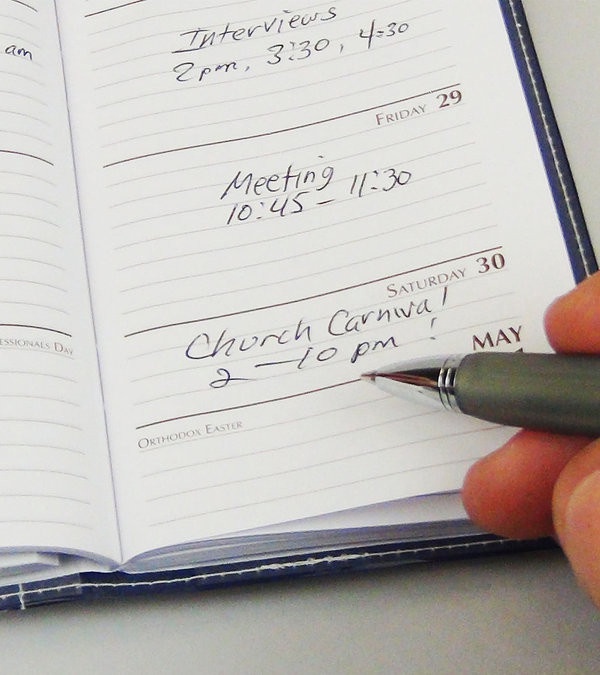 am
Interviews
2pm, 3:30, 4:30
FRIDAY 29
Meeting
10:45 - 11:30
SATURDAY 30
Church Carnival
2 - 10 pm !
MAY
ESSIONALS DAY
ORTHODOX EASTER